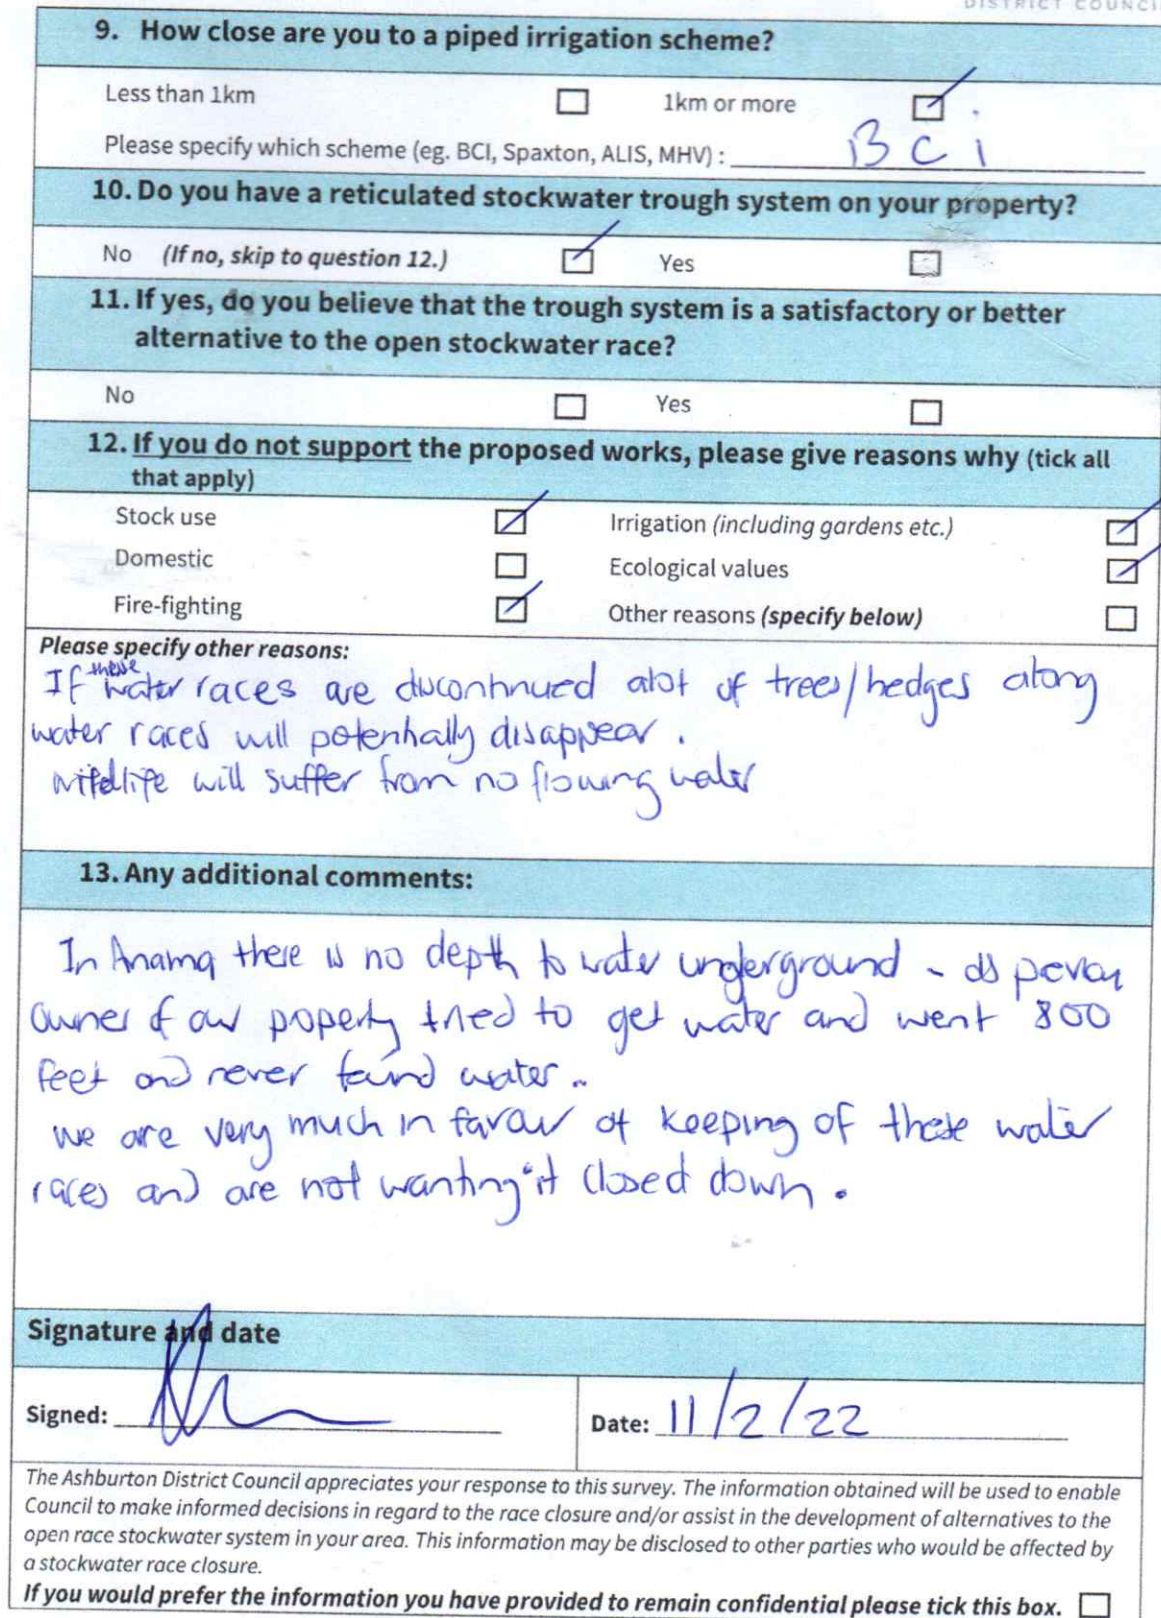 DISTRICT COUNCI
9. How close are you to a piped irrigation scheme?
Less than 1km ☐ 1km or more ☑
Please specify which scheme (eg. BCI, Spaxton, ALIS, MHV) : BCi
10. Do you have a reticulated stockwater trough system on your property?
No (If no, skip to question 12.) ☑ Yes ☐
11. If yes, do you believe that the trough system is a satisfactory or better
alternative to the open stockwater race?
No ☐ Yes ☐
12. If you do not support the proposed works, please give reasons why (tick all
that apply)
Stock use ☑ Irrigation (including gardens etc.) ☑
Domestic ☐ Ecological values ☑
Fire-fighting ☑ Other reasons (specify below) ☐
Please specify other reasons:
If these water races are discontinued alot of trees/hedges along
water races will potentially disappear.
wildlife will suffer from no flowing water
13. Any additional comments:
In Anama there is no depth to water underground -
owner of our property tried to get water and went 800
feet and never found water.
we are very much in favour of keeping of these water
races and are not wanting it closed down.
Signature and date
Signed: Date: 11/2/22
The Ashburton District Council appreciates your response to this survey. The information obtained will be used to enable
Council to make informed decisions in regard to the race closure and/or assist in the development of alternatives to the
open race stockwater system in your area. This information may be disclosed to other parties who would be affected by
a stockwater race closure.
If you would prefer the information you have provided to remain confidential please tick this box. ☐